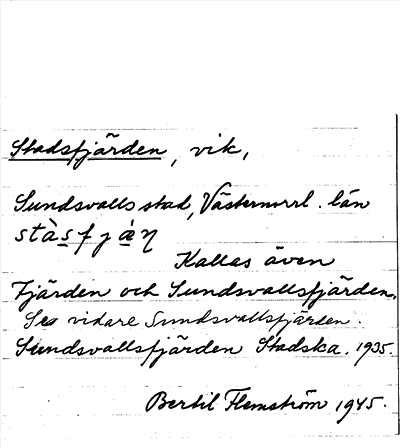 Stadsfjärden, vik,
Sundsvalls stad, Västernorrl. län
stàsfjàɳ
Kallas även
Fjärden och Sundsvallsfjärden.
Se vidare Sundsvallsfjärden.
Sundsvallsfjärden Stadska. 1935.
Bertil Flemström 1945.